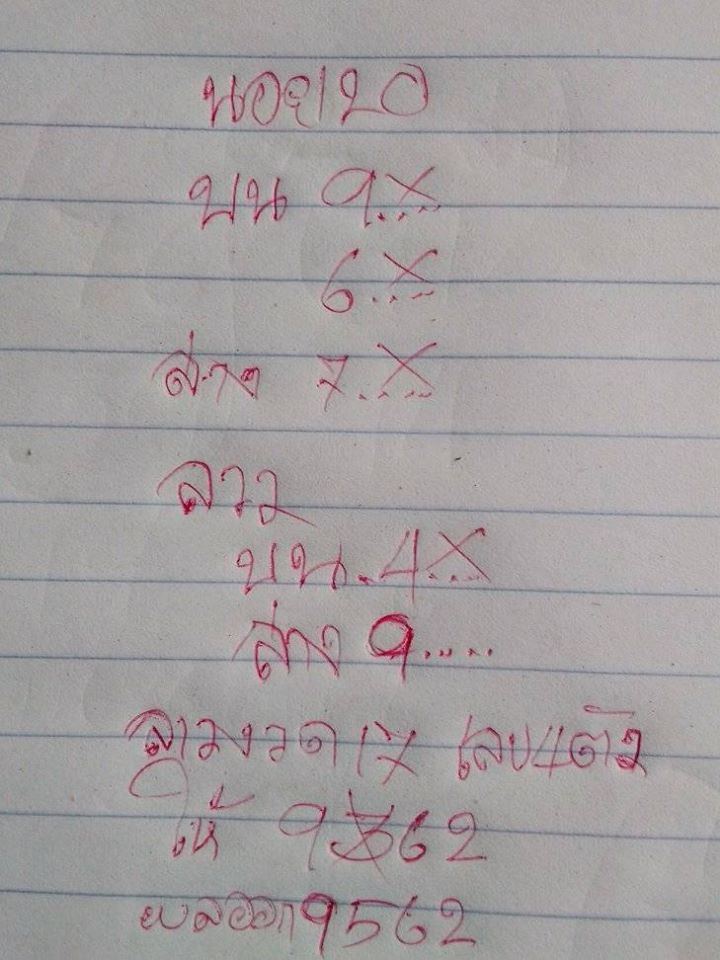 นอย120
บน 9.x...
6.x...
ล่าง 7.x...
ลาว
บน.4.x...
ล่าง 9.....
ลาวงวด17 เลข4ตัว
ให้ 9362
ผลออก9562